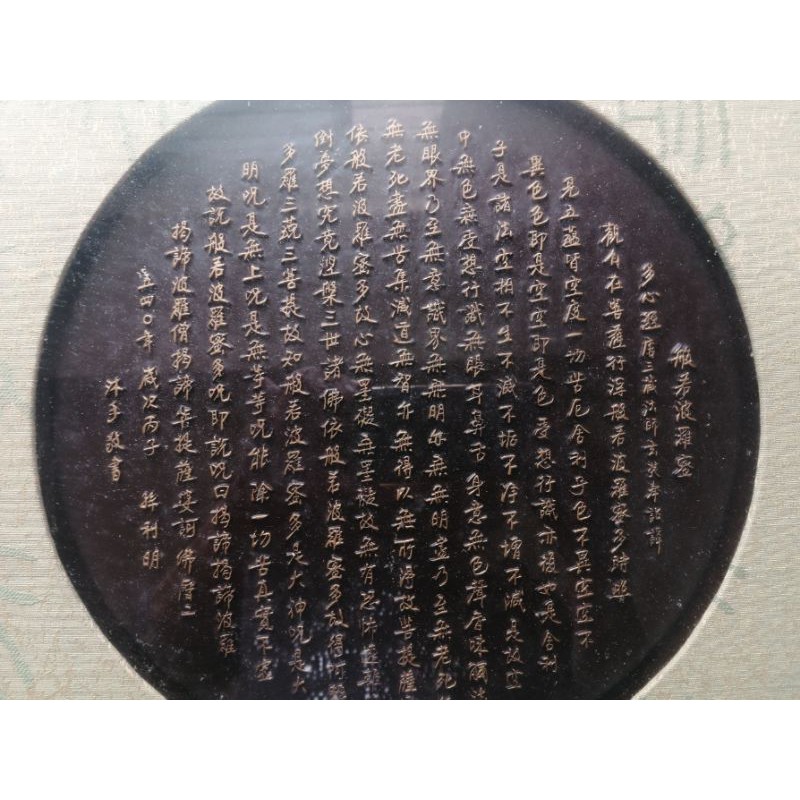 般若波羅蜜
多心經 唐三藏法師玄奘奉詔譯
觀自在菩薩行深般若波羅蜜多時照
見五蘊皆空度一切苦厄舍利子色不異空空不
異色色即是空空即是色受想行識亦復如是舍利
子是諸法空相不生不滅不垢不淨不增不減是故空
中無色無受想行識無眼耳鼻舌身意無色聲香味觸法
無眼界乃至無意識界無無明亦無無明盡乃至無老死
無老死盡無苦集滅道無智亦無得以無所得故菩提薩
依般若波羅蜜多故心無罣礙無罣礙故無有恐怖遠離
倒夢想究竟涅槃三世諸佛依般若波羅蜜多故得阿
多羅三藐三菩提故知般若波羅蜜多是大神咒是大
明咒是無上咒是無等等咒能除一切苦真實不虛
故說般若波羅蜜多咒即說咒曰揭諦揭諦波羅
揭諦波羅僧揭諦菩提薩婆訶佛曆二
五四〇年 歲次丙子 弟利明
沐手敬書